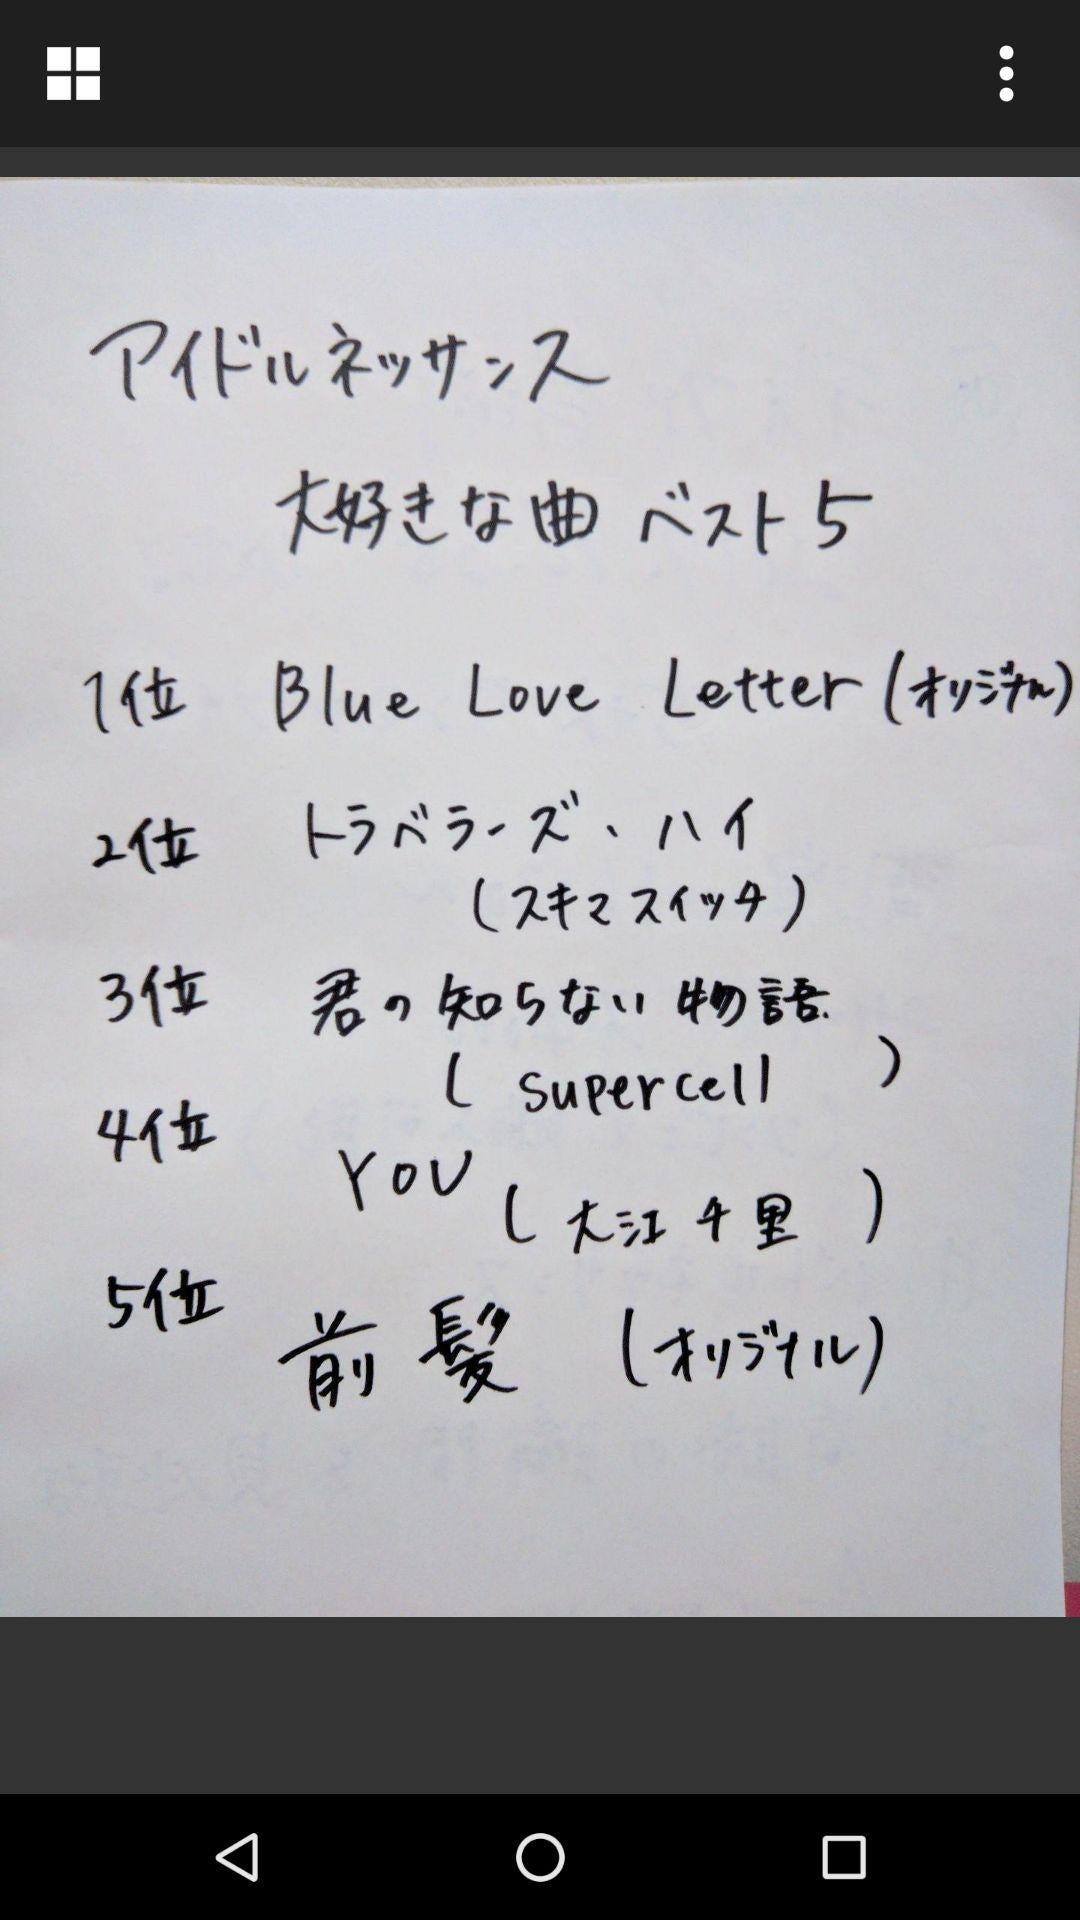 アイドルネッサンス
大好きな曲 ベスト5
1位 Blue Love Letter (オリジナル)
2位 トラベラーズ・ハイ
(スキマスイッチ)
3位 君の知らない物語
( supercell )
4位 YOU ( 大江千里 )
5位 前髪 (オリジナル)